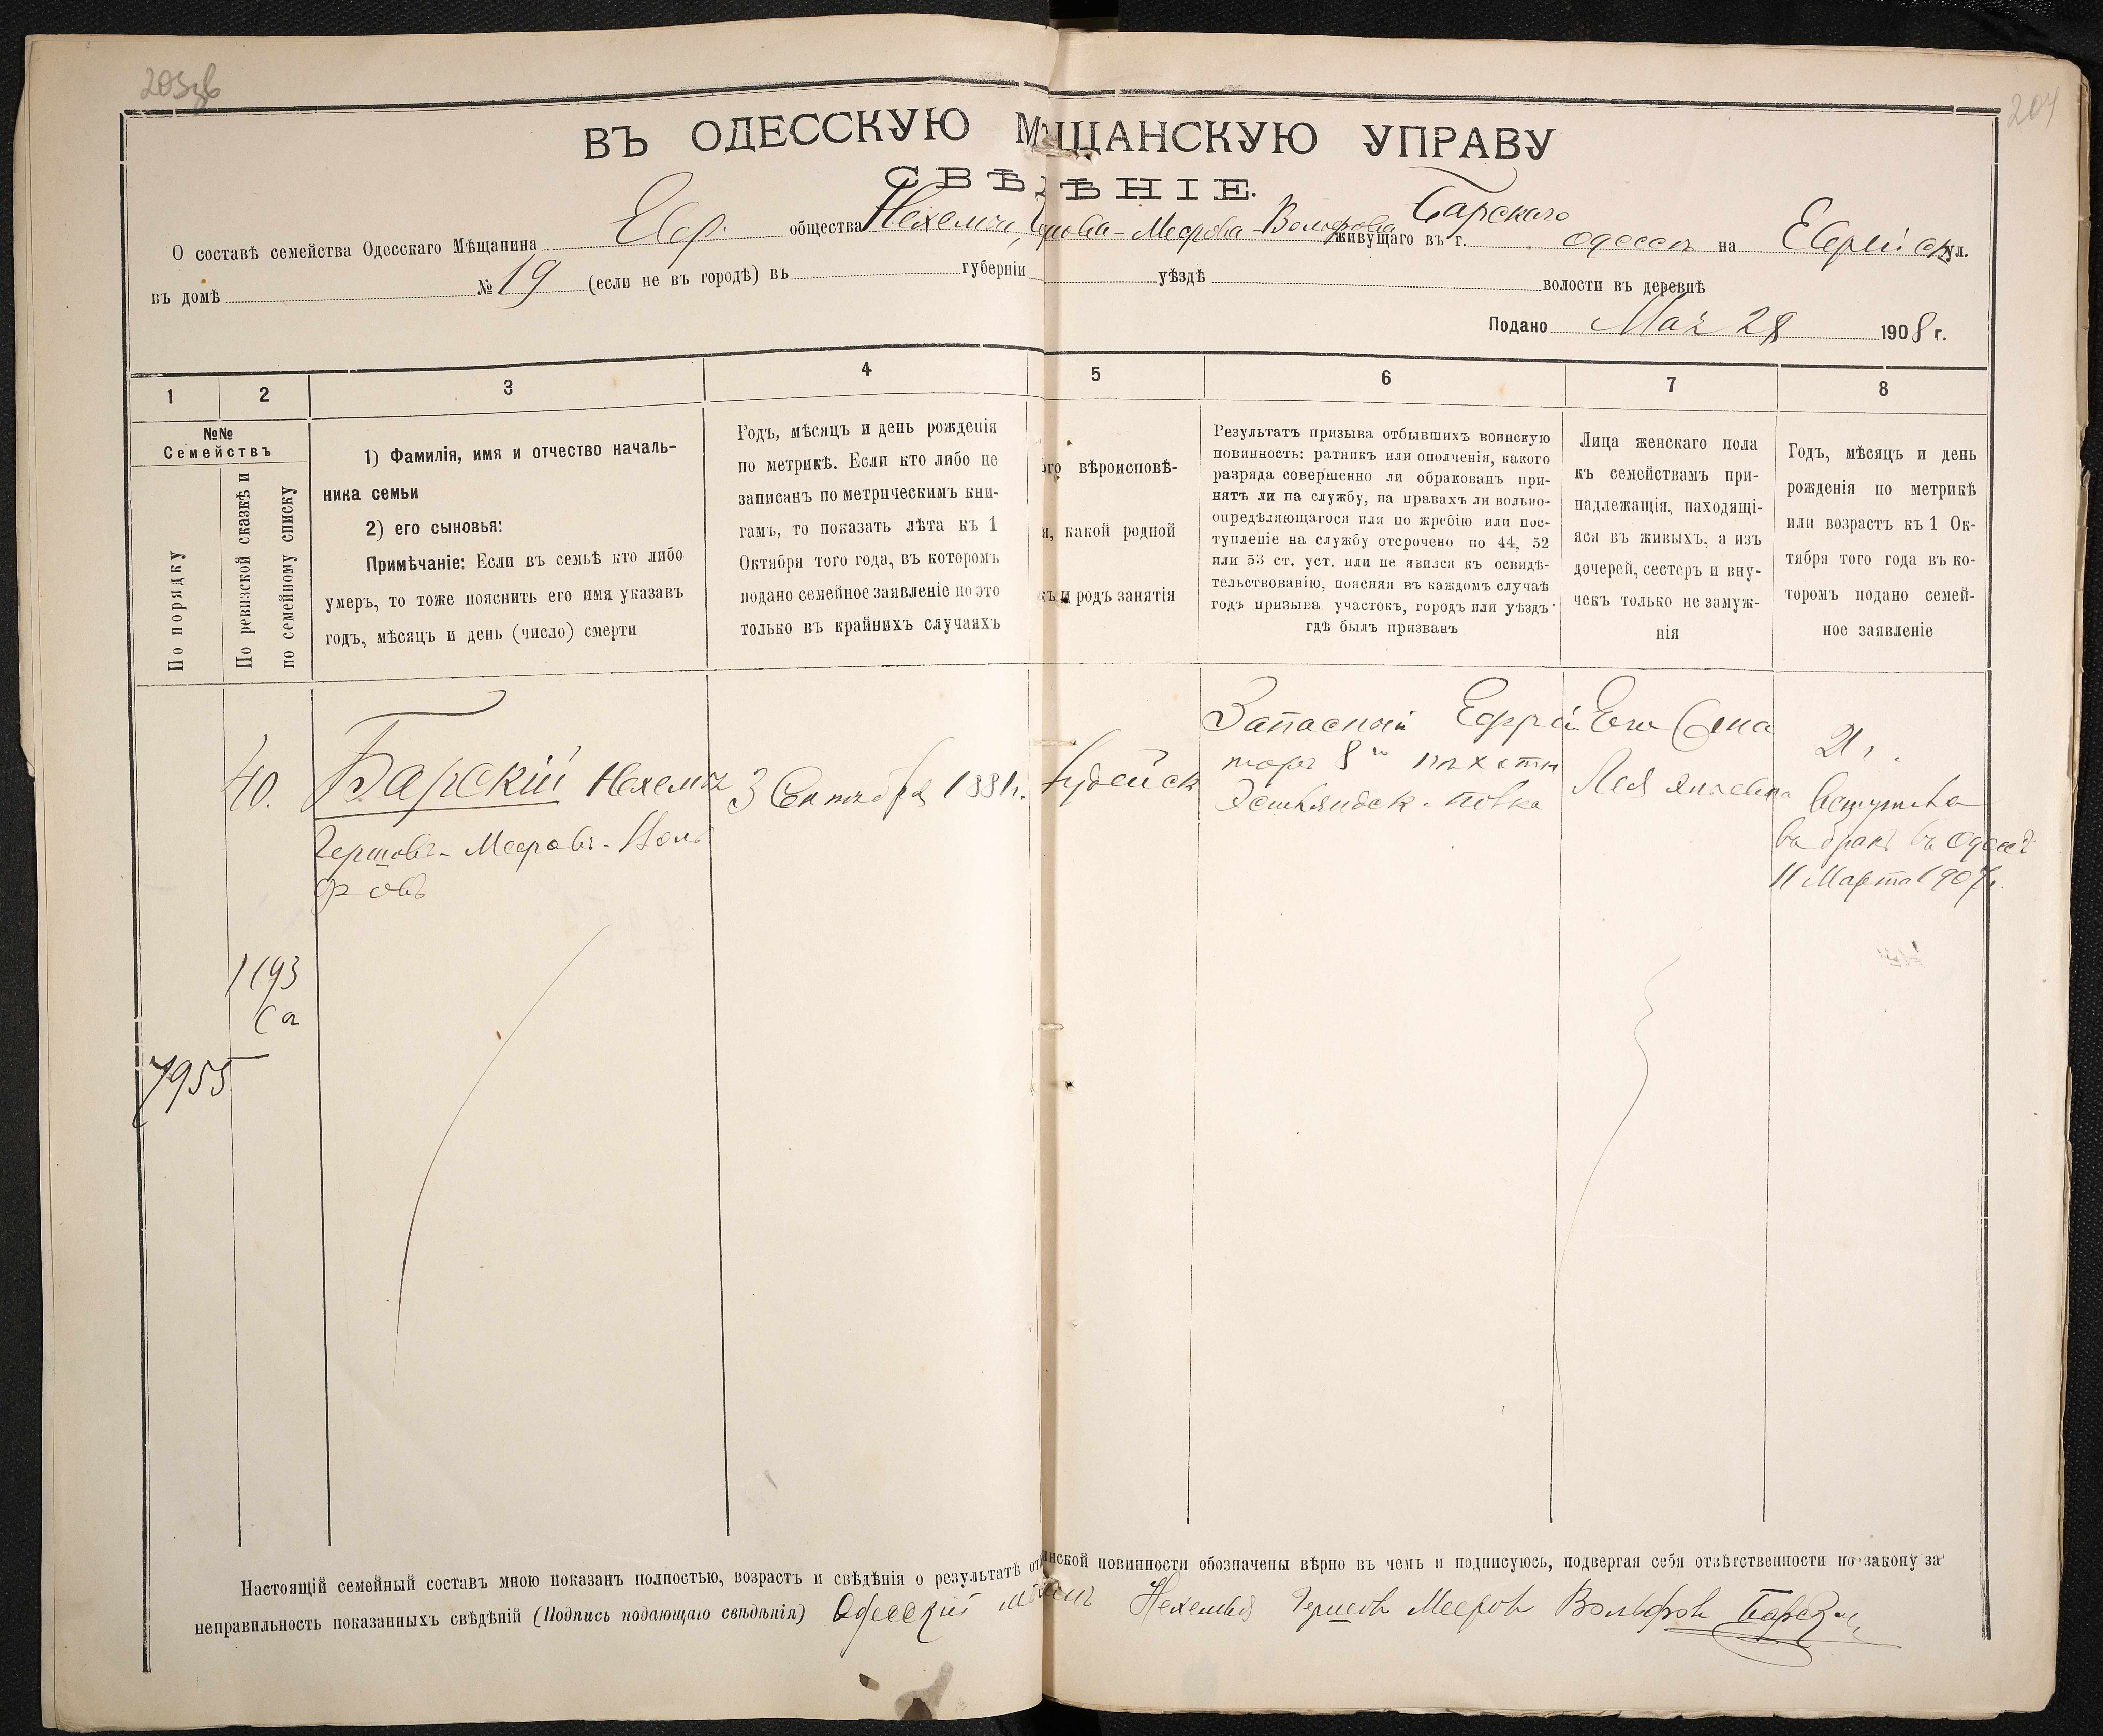 203зв
204
ВЪ ОДЕССКУЮ МѢЩАНСКУЮ УПРАВУ
СВѢДѢНІЕ.
О составѣ семейства Одесскаго Мѣщанина Евр. общества Нехеміи Герш-Меерова-Вольфова Барскаго живущаго въ г. Одессѣ на Еврейск ул.
въ домѣ № 19 (если не въ городѣ) въ губерніи уѣздѣ волости въ деревнѣ
Подано Мая 28 1908 г.
1 2 3 4 5 6 7 8
№№
Семействъ
По порядку
По ревизской сказкѣ и
по семейному списку
1) Фамилія, имя и отчество началь-
ника семьи
2) его сыновья:
Примѣчаніе: Если въ семьѣ кто либо
умеръ, то тоже пояснить его имя указавъ
годъ, мѣсяцъ и день (число) смерти
Годъ, мѣсяцъ и день рожденія
по метрикѣ. Если кто либо не
записанъ по метрическимъ кни-
гамъ, то показать лѣта къ 1
Октября того года, въ которомъ
подано семейное заявленіе но это
только въ крайнихъ случаяхъ
го вѣроисповѣ-
и, какой родной
къ и родъ занятія
Результатъ призыва отбывшихъ воинскую
повинность: ратникъ или ополченія, какого
разряда совершенно ли обракованъ при-
нятъ ли на службу, на правахъ ли вольно-
опредѣляющагося или по жребію или пос-
тупленіе на службу отсрочено по 44, 52
или 53 ст. уст. или не явился къ освидѣ-
тельствованію, поясняя въ каждомъ случаѣ
годъ призыва участокъ, городъ или уѣздъ
гдѣ былъ призванъ
Лица женскаго пола
къ семействамъ при-
надлежащія, находящі-
яся въ живыхъ, а изъ
дочерей, сестеръ и вну-
чекъ только не замуж-
нія
Годъ, мѣсяцъ и день
рожденія по метрикѣ
или возрастъ къ 1 Ок-
тября того года въ ко-
торомъ подано семей-
ное заявленіе
40.
Барскій Нехемія
Гершовъ-Мееровъ-Воль
фовъ
3 Сентября 1881 г.
Іудейск
Запасный Ефрей
торъ 8й пѣхотн
Эстляндск. полка
Его жена
Лея
21 г.
вступила
въ бракъ въ Одессѣ
11 Марта 1907 г.
1193
7955
Настоящій семейный составъ мною показанъ полностью, возрастъ и свѣдѣнія о результатѣ от инской повинности обозначены вѣрно въ чемъ и подписуюсь, подвергая себя отвѣтственности по закону за
неправильность показанныхъ свѣдѣній (Подпись подающаго свѣдѣнія) Одесскій мѣщан Нехемья Гершов Мееров Вольфов Барский